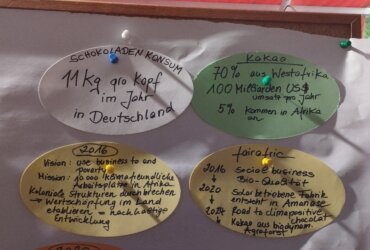 SCHOKOLADEN KONSUM
11 Kg pro Kopf
im Jahr
in Deutschland
Kakao
70% aus Westafrika
100 Milliarden US$
umsatz pro Jahr
5% kommen in Afrika
an
2016
Vision: use business to end
poverty
Mission: 10 000 klimafreundliche
Arbeitsplätze in Afrika
Koloniale Strukturen durchbrechen
→ Wertschöpfung im Land
etablieren = nachhaltige
Entwicklung
fairafric
2016 Social business
Bio-Qualität
2020 Solar betriebene Fabrik
entsteht in Amanase
Road to climapositive
chocolat
Kakao aus biodynam.
Agroforst